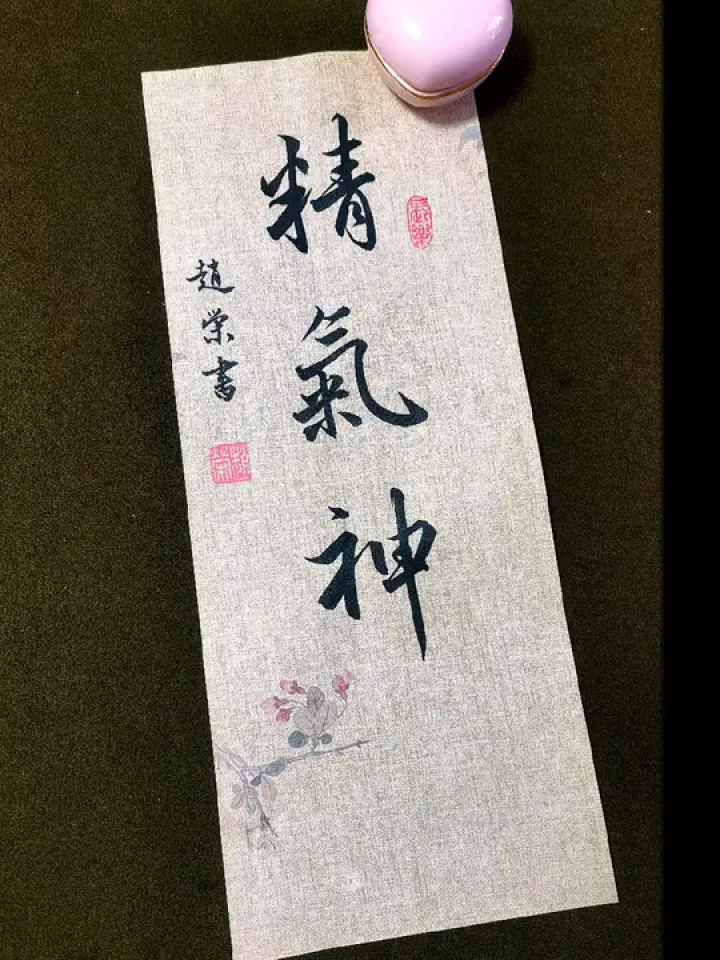 精氣神
趙荣書